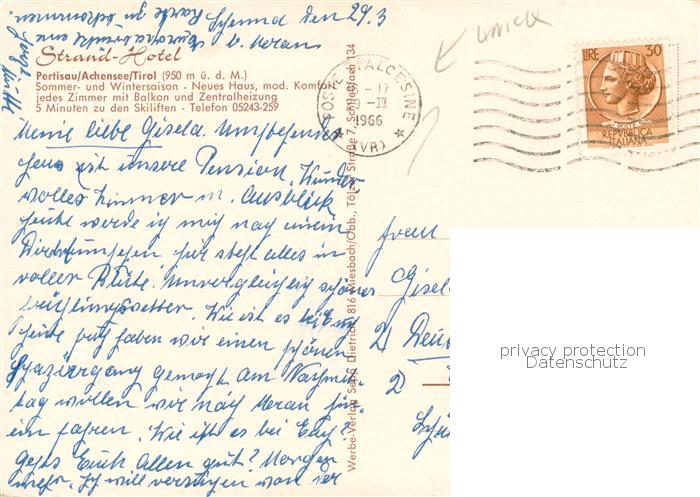 Schenna den 29.3
b. Meran
Strand-Hotel
Pertisau/Achensee/Tirol (950 m ü. d. M.)
Sommer- und Wintersaison - Neues Haus, mod. Komfort,
jedes Zimmer mit Balkon und Zentralheizung
5 Minuten zu den Skiliften - Telefon 05243-259
Meine liebe Gisela. Umstehender
ist unsere Pension. Wunder
volles Zimmer m. Ausblick
heute werde ich mich nach einem
hier steht alles in
voller Blüte. Unvergleichlich schönes
Frühlingswetter. Wie ist es bei Euch
heute früh haben wir einen schönen
Spaziergang gemacht am Nachmit
tag wollen wir nach Meran hin
ein fahren. Wie ist es bei Euch?
Gehts Euch Allen gut? Morgen
mehr. Ich will versorgen von der
Karte zu bekommen.
Werbe-Verlag Sepp Dietrich, 816 Miesbach/Obb., Tölzer Straße 7, Schließfach 134
POSTE MALCESINE
-17
-III
1966
(VR)
zurück
LIRE 30
POSTE
REPVBBLICA
ITALIANA
Frau
Gisel
21
2)
privacy protection
Datenschutz